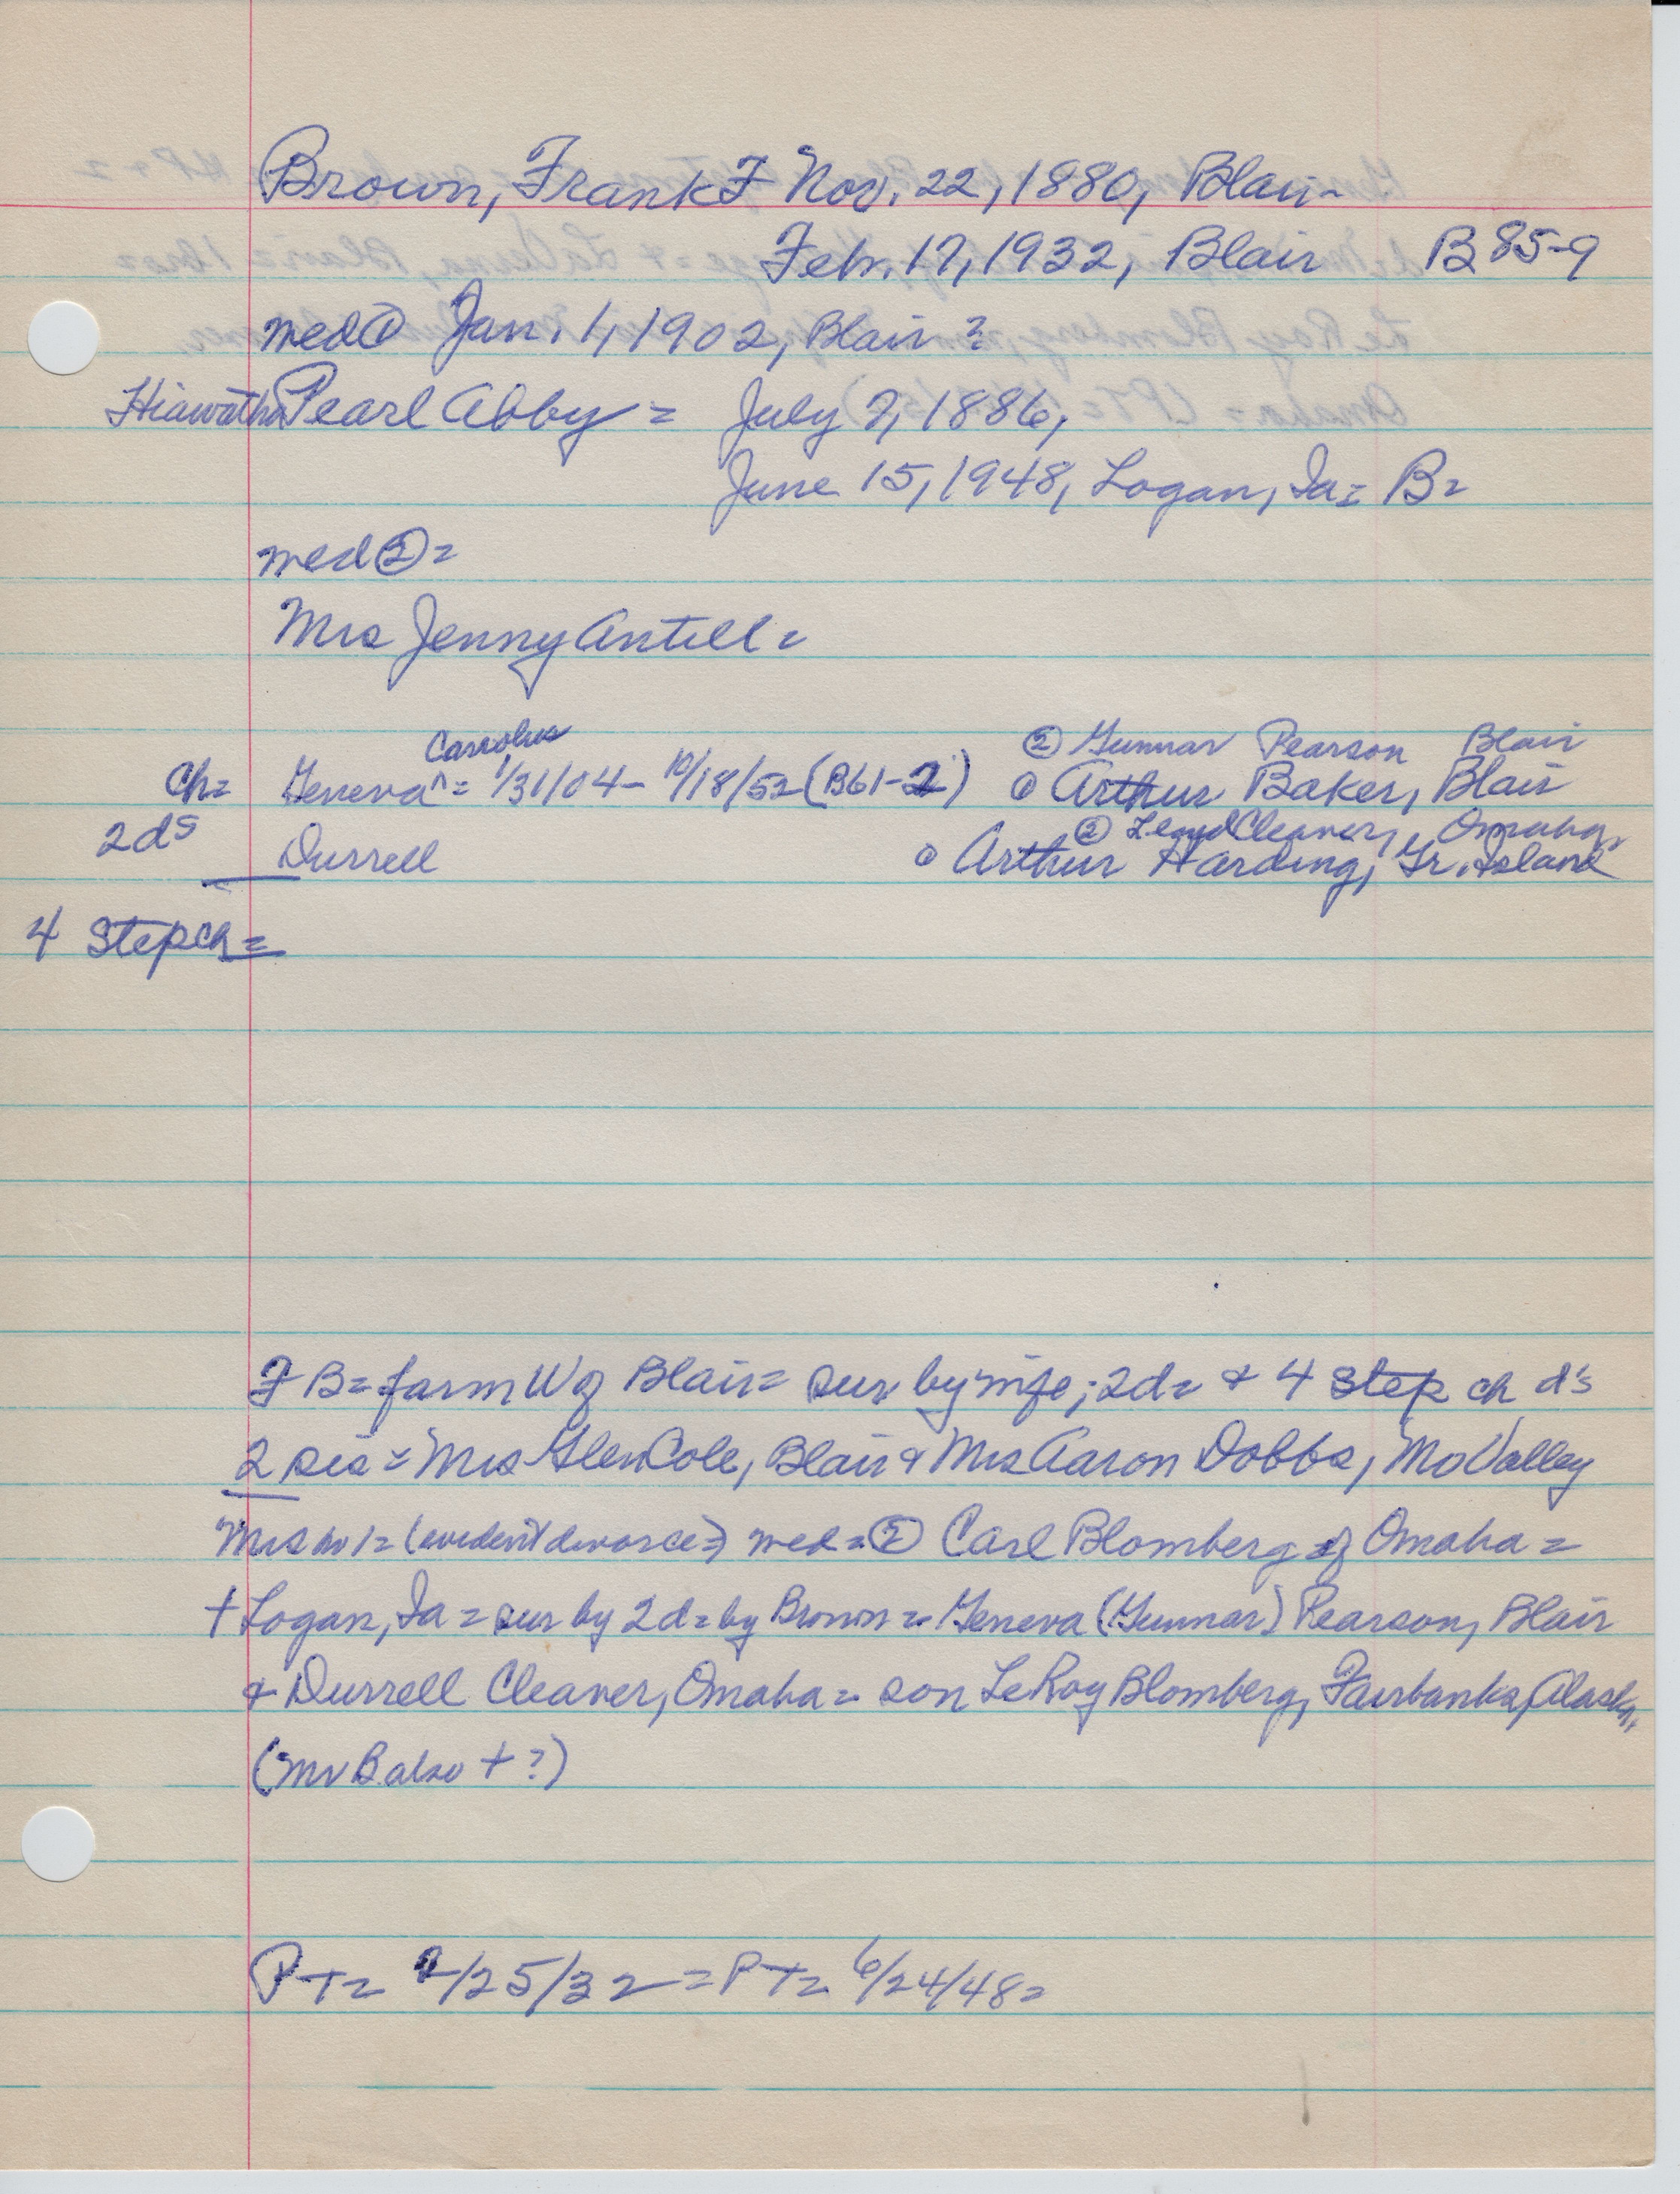 Brown, Frank F Nov. 22, 1880, Blair-
Feb. 17, 1932, Blair B 85-9
med ① Jan. 1, 1902, Blair?
Hiawatha Pearl Abby = July 7, 1886,
June 15, 1948, Logan, Ia = B=
med ② =
Mrs Jenny Antill =
Carrolus ② Gunnar Pearson Blair
Ch= Geneva ^ = 1/31/04 - 10/18/52 (B61-2) ① Arthur Baker, Blair
② Lloyd Cleaver, Omaha,
2ds Durrell ① Arthur Harding, Gr. Island
4 Stepch=
F B= farm W of Blair= sur by wife; 2d= & 4 step ch d's
2 sis = Mrs Glen Cole, Blair & Mrs Aaron Dobbs, Mo Valley
Mrs no 1= (evident divorce=) med = ② Carl Blomberg of Omaha =
+ Logan, Ia = sur by 2d= by Brown = Geneva (Gunnar) Pearson, Blair
& Durrell Cleaver, Omaha = son LeRoy Blomberg, Fairbanks, Alaska,
(Mr B also + ?)
PT= 2/25/32 = PT= 6/24/48=